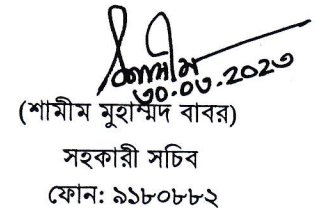 শামীম
৩০.০৩.2023
(শামীম মুহাম্মদ বাবর)
সহকারী সচিব
ফোন: ৯১৮০৮৮২